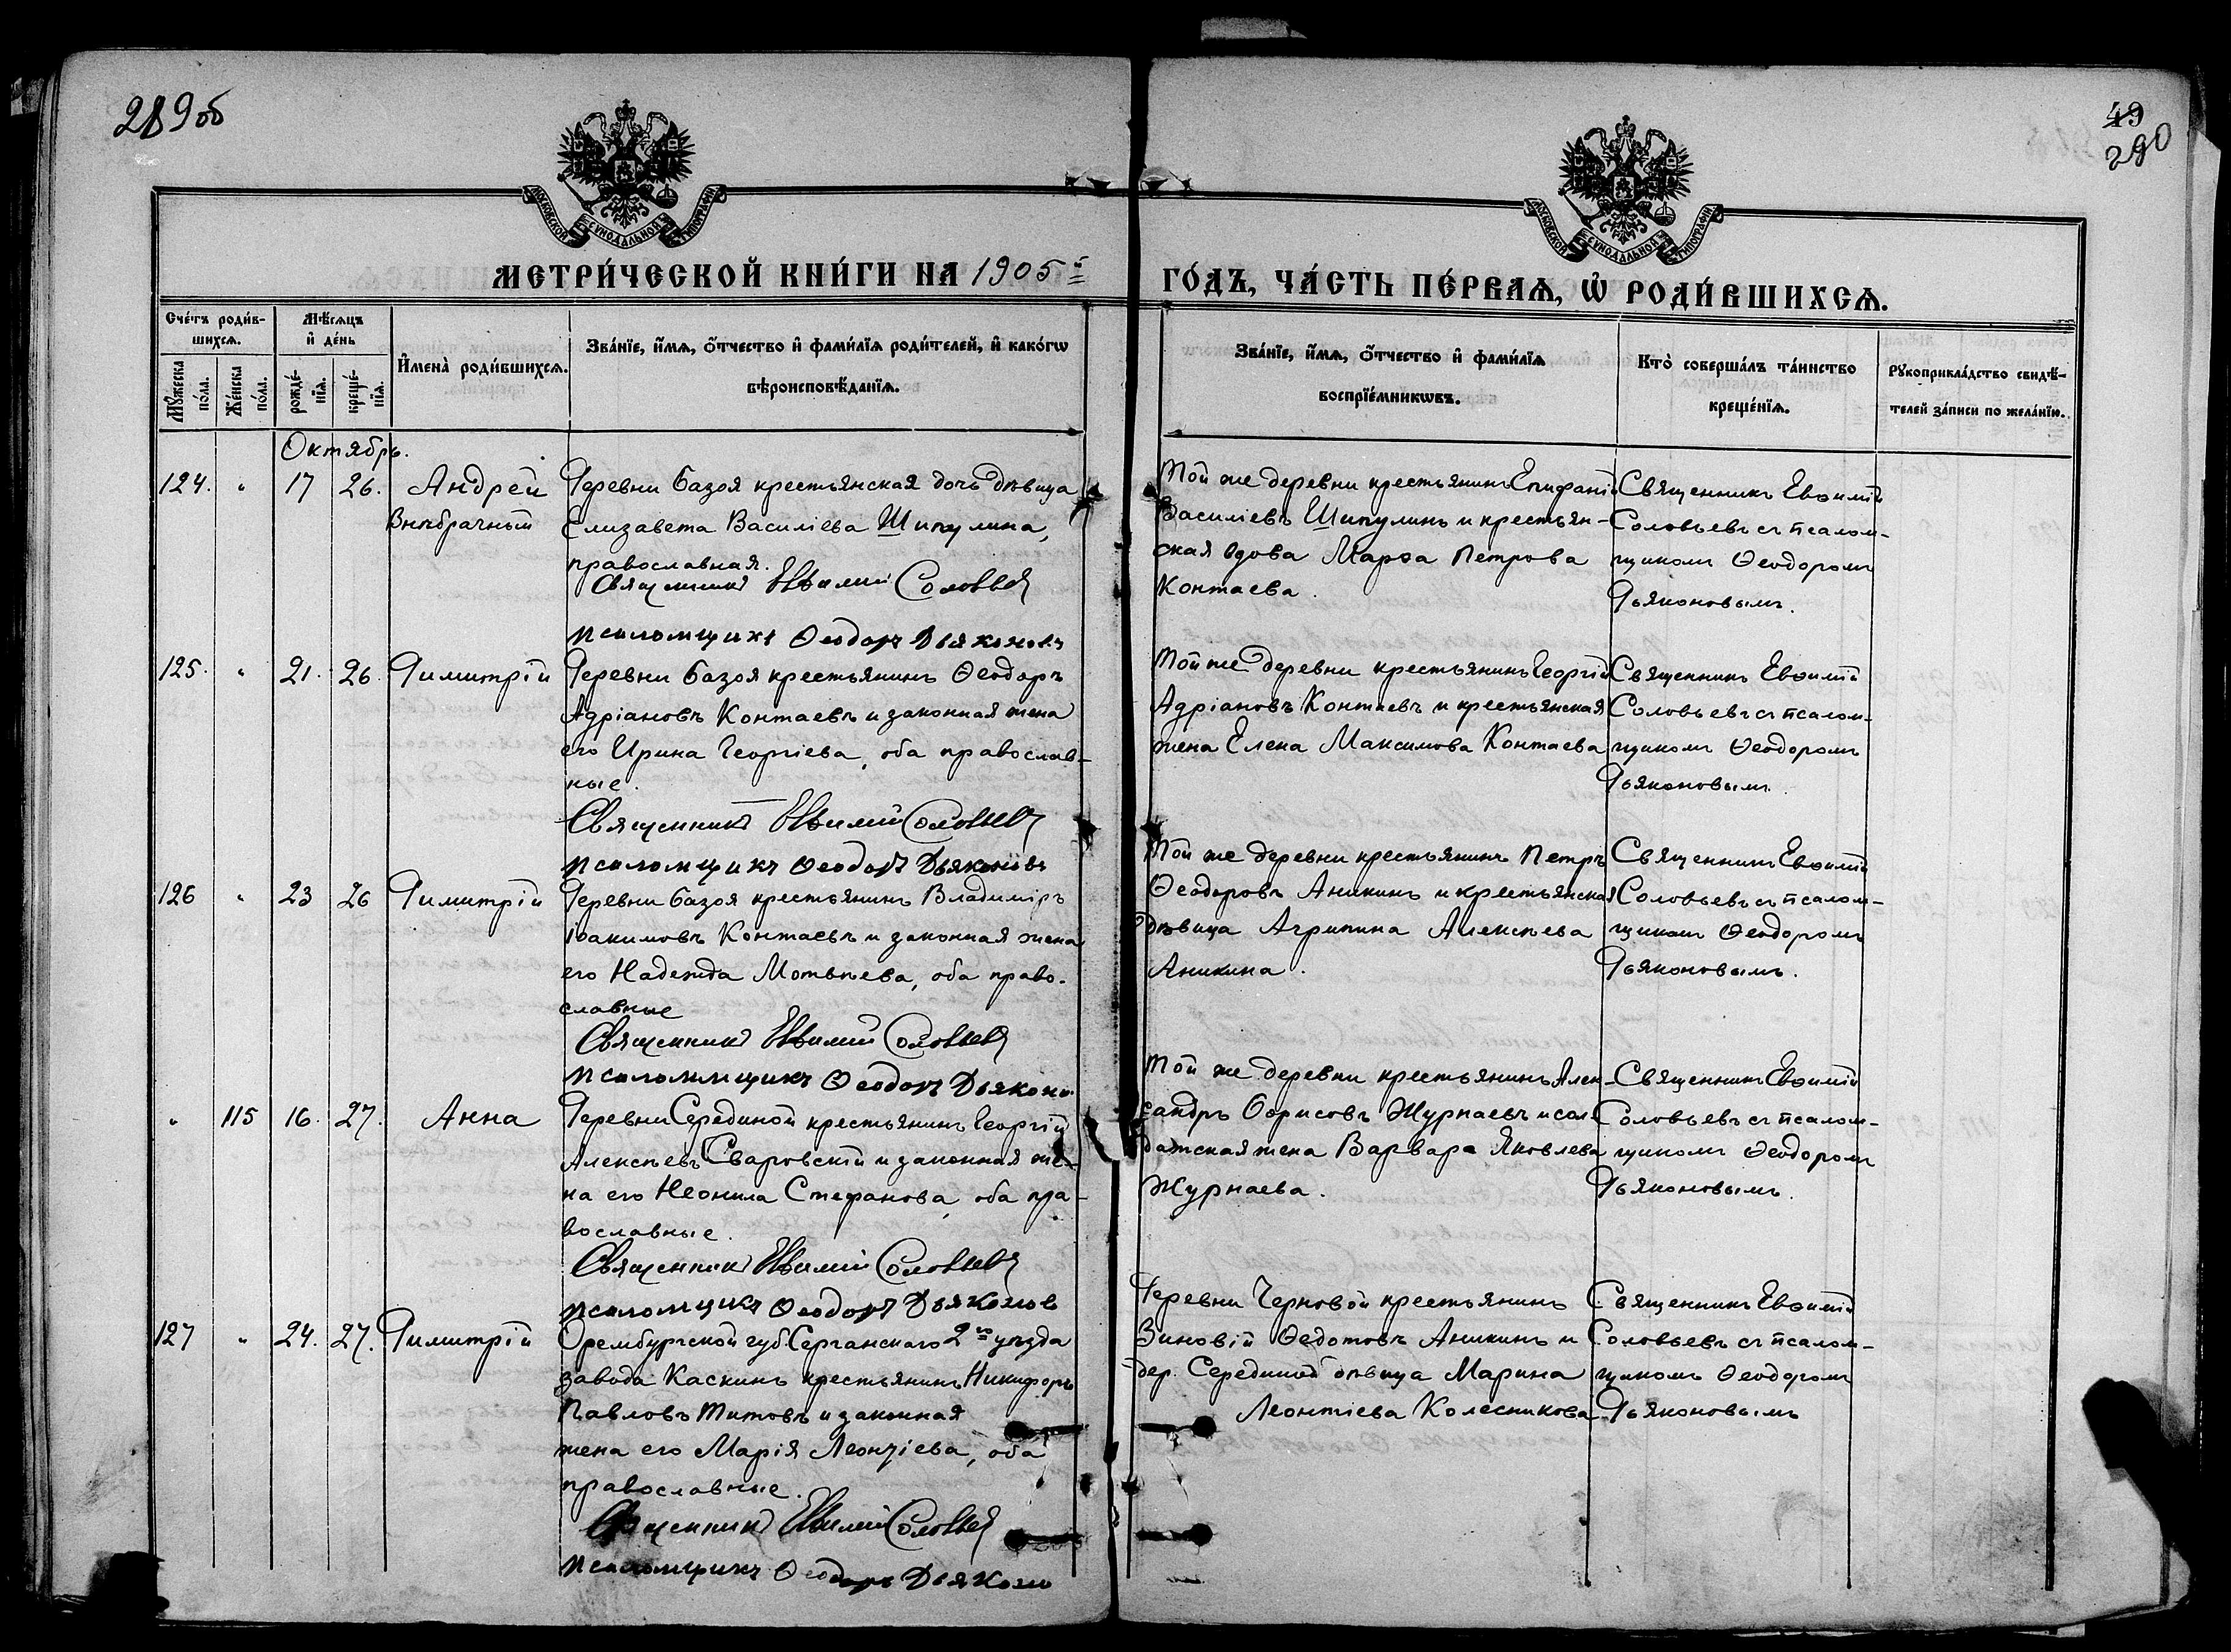 289об
49
290
МОСКОВСКОЙ СѴНОДАЛЬНОЙ ТИПОГРАФІИ
МОСКОВСКОЙ СѴНОДАЛЬНОЙ ТИПОГРАФІИ
МЕТРИ́ЧЕСКОЙ КНИ́ГИ НА 1905й
ГО́ДЪ, ЧА́СТЬ ПЕ́РВАѦ, Ѽ РОДИ́ВШИХСѦ.
Сче́тъ роди́в-
шихсѧ.
Мѣ́сѧцъ
и҆ де́нь
И҆мена̀ роди́вшихсѧ.
Зва́нїе, и҆́мѧ, о҆́тчество и҆ фами́лїѧ роди́телей, и҆ како́гѡ
вѣроисповѣ́данїѧ.
Мꙋ́жеска
по́ла.
Же́нска
по́ла.
рожде́-
нїѧ.
креще́-
нїѧ.
Зва́нїе, и҆́мѧ, о҆́тчество и҆ фами́лїѧ
воспрїе́мникѡвъ.
Кто̀ соверша́лъ та́инство
креще́нїѧ.
Рꙋкоприкла́дство свидѣ́-
телей за́писи по жела́нїю.
Октябрь.
124. " 17 26. Андрей
Внѣбрачный
Деревни Базоя крестьянская дочь дѣвица
Елизавета Василіева Шипулина,
православная.
Священникъ Евѳимій Соловьевъ
псаломщикъ Ѳеодоръ Дьяконовъ
Той же деревни крестьянинъ Епифаній
Василіевъ Шипулинъ и крестьян-
ская вдова Марѳа Петрова
Контаева.
Священникъ Евѳимій
Соловьевъ съ псалом-
щикомъ Ѳеодоромъ
Дьяконовымъ.
125. " 21. 26. Димитрій
Деревни Базоя крестьянинъ Ѳеодоръ
Адріановъ Контаевъ и законная жена
его Ирина Георгіева, оба православ-
ные.
Священникъ Евѳимій Соловьевъ
псаломщикъ Ѳеодоръ Дьяконовъ
Той же деревни крестьянинъ Георгій
Адріановъ Контаевъ и крестьянская
жена Елена Максимова Контаева
Священникъ Евѳимій
Соловьевъ съ псалом-
щикомъ Ѳеодоромъ
Дьяконовымъ.
126 " 23 26 Димитрій
Деревни Базоя крестьянинъ Владиміръ
Іоакимовъ Контаевъ и законная жена
его Надежда Мотвѣева, оба право-
славные
Священникъ Евѳимій Соловьевъ
псаломщикъ Ѳеодоръ Дьяконо
Той же деревни крестьянинъ Петръ
Ѳеодоровъ Аникинъ и крестьянская
дѣвица Агрипина Алексѣева
Аникина.
Священникъ Евѳимій
Соловьевъ съ псалом-
щикомъ Ѳеодоромъ
Дьяконовымъ.
" 115 16. 27. Анна
Деревни Серединой крестьянинъ Георгій
Алексѣевъ Сваровскій и законная же-
на его Неонила Стефанова, оба пра-
вославные.
Священникъ Евѳимій Соловьевъ
псаломщикъ Ѳеодоръ Дьяконов
Той же деревни крестьянинъ Алек-
сандръ Борисовъ Журнаевъ и сол-
датская жена Варвара Яковлева
Журнаева.
Священникъ Евѳимій
Соловьевъ съ псалом-
щикомъ Ѳеодоромъ
Дьяконовымъ.
127 " 24. 27. Димитрій
Орембургской губ. Серганскаго 2го уѣзда
завода Каскинъ крестьянинъ Никифоръ
Павловъ Титовъ и законная
жена его Марія Леонтіева, оба
православные.
Священникъ Евѳимій Соловьевъ
псаломщикъ Ѳеодоръ Дьяконо
Деревни Черновой крестьянинъ
Зиновій Ѳедотовъ Аникинъ и
дер. Серединой дѣвица Марина
Леонтіева Колесникова
Священникъ Евѳимій
Соловьевъ съ псалом-
щикомъ Ѳеодоромъ
Дьяконовымъ